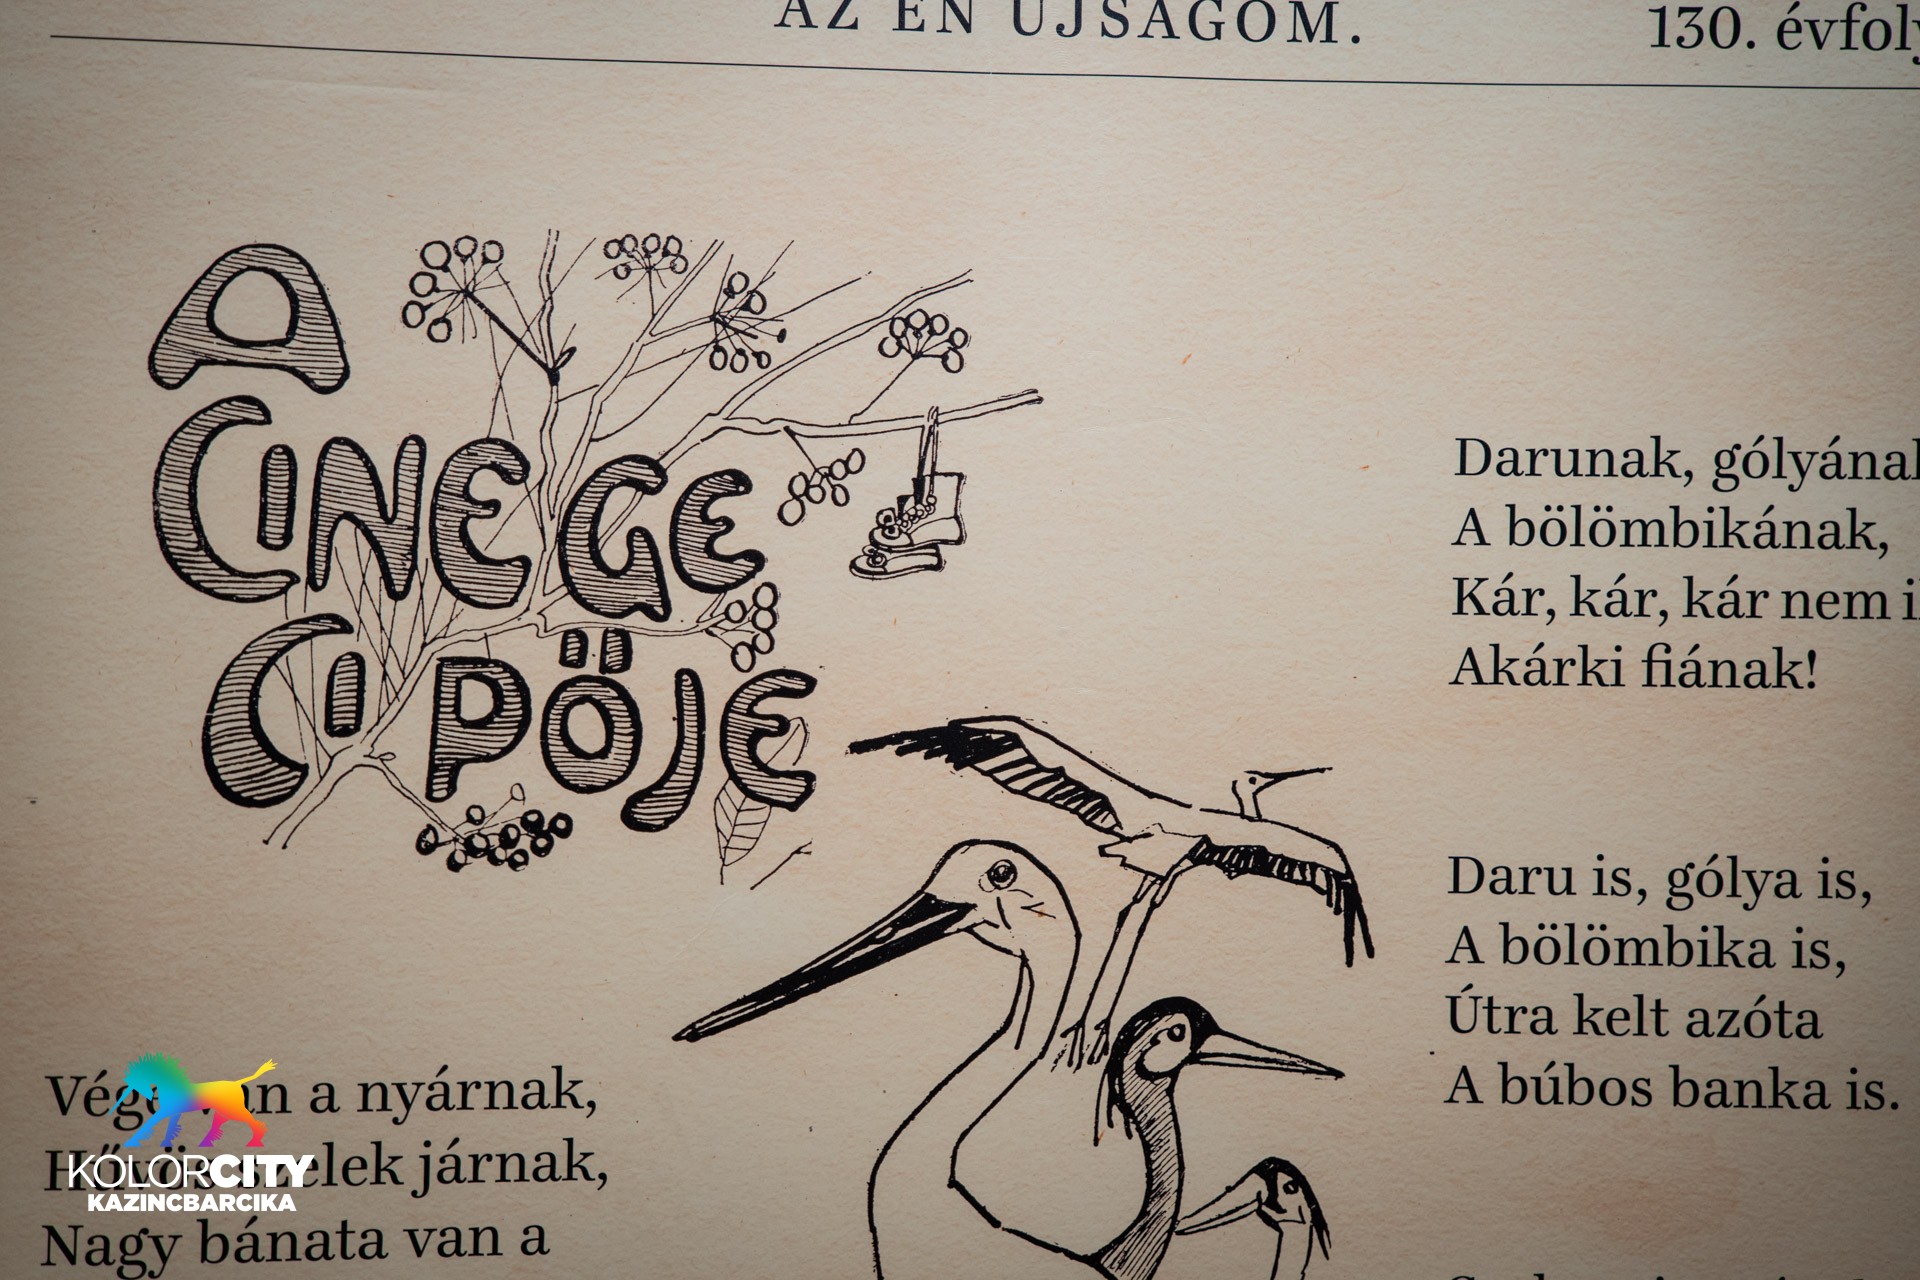 AZ ÉN ÚJSÁGOM.
130.
A
CINEGE
CIPŐJE
Vége van a nyárnak,
Hűvös szelek járnak,
Nagy bánata van a
Darunak,
A bölömbikának,
Kár, kár, kár nem
Akárki fiának!
Daru is, gólya is,
A bölömbika is,
Útra kelt azóta
A búbos banka is.
KOLORCITY
KAZINCBARCIKA